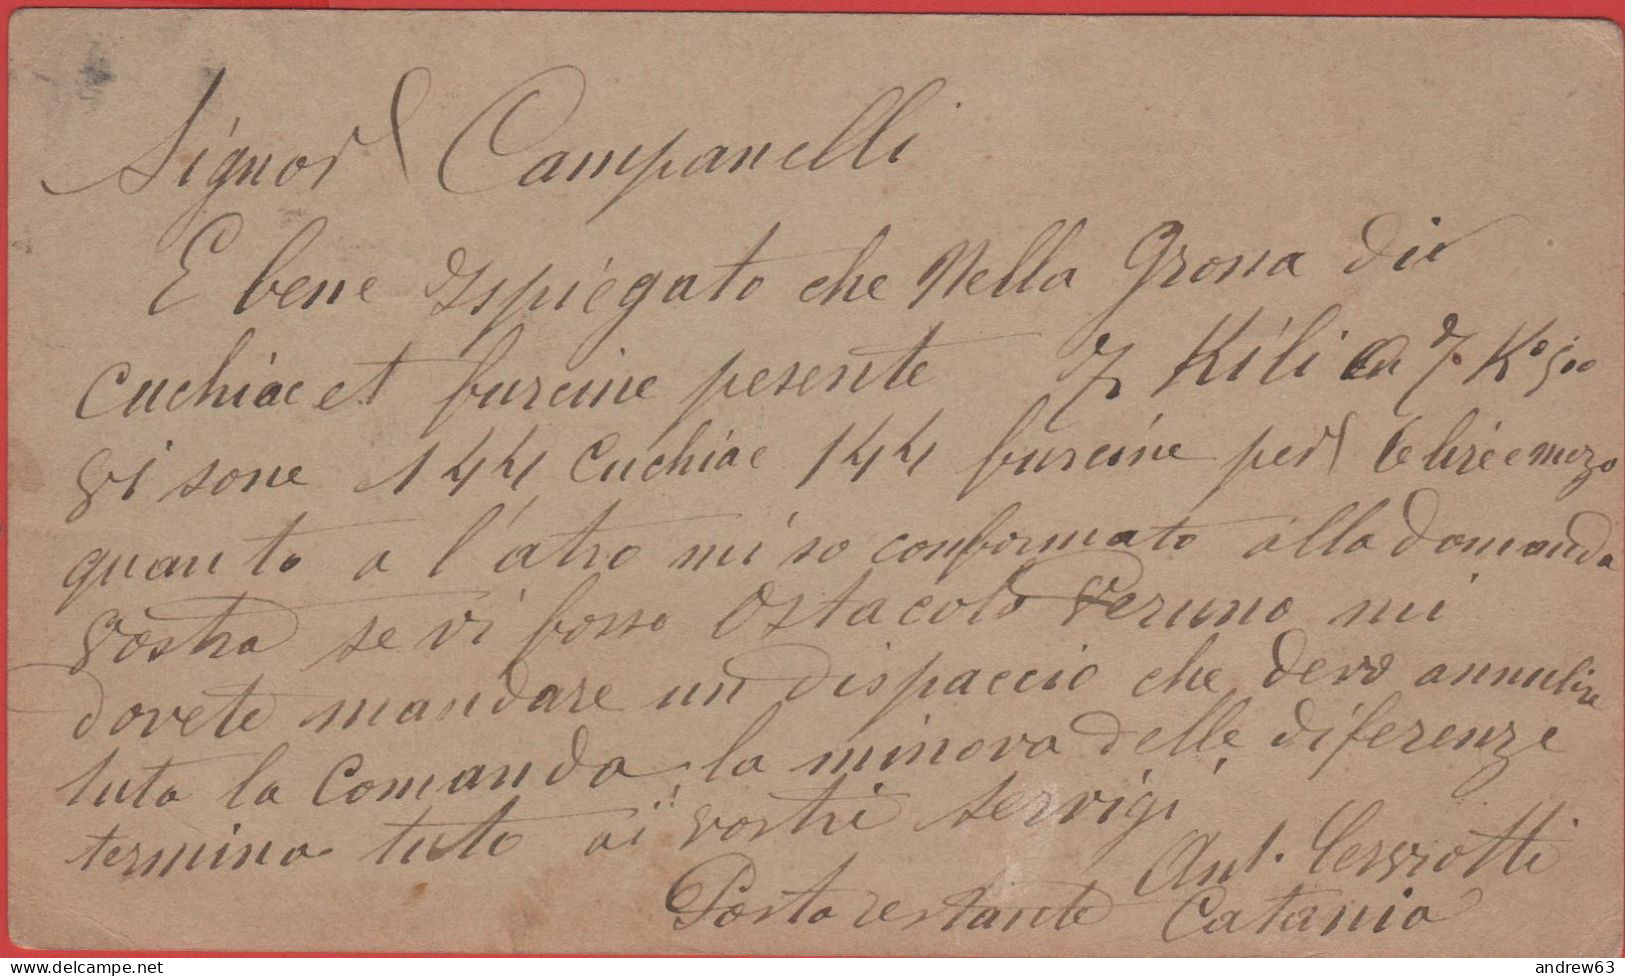 Signor Campanelli
E bene Ispiegato che Nella Grossa di
Cuchiae et furcine pesente 7 Kili 7 Ko 500
Vi sone 144 Cuchiae 144 furcine per 6 lire e mezo
quanto a l'atro mi so conformato alla domanda
Vostra se vi fosse Ostacolo Veruno mi
dovete mandare un dispaccio che devo annulire
tuta la Comanda la minova delle diferenze
termina tuto ai vostri servigi
Ant. Cervotti
Posta restante Catania
andrew63